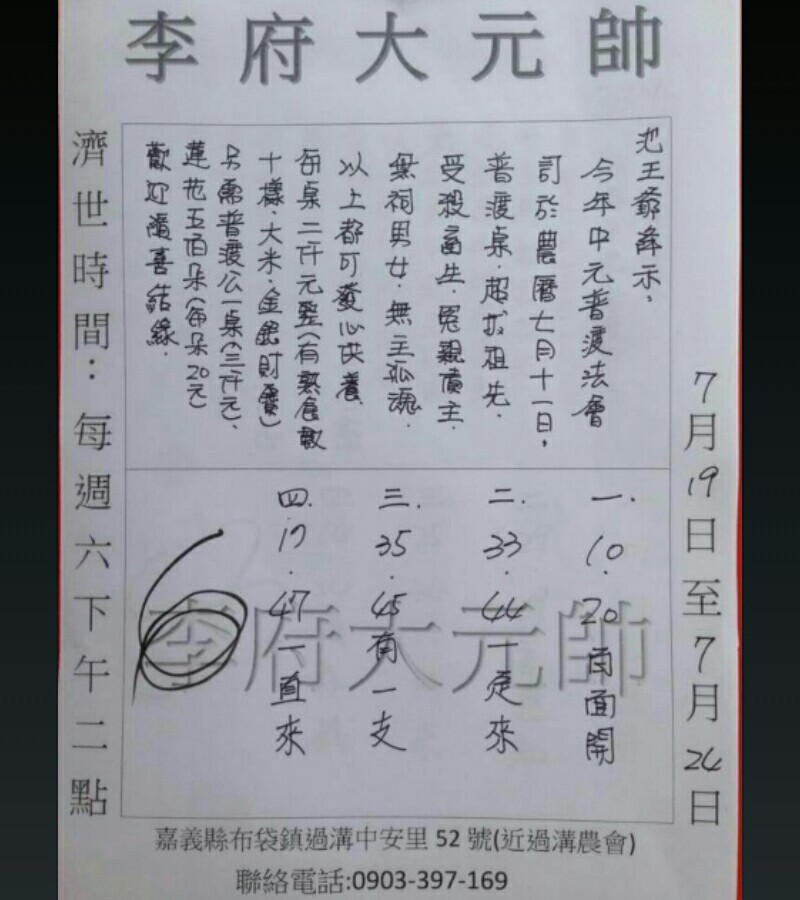 李府大元帥
7月19日至7月24日
池王爺降示,
今年中元普渡法會
訂於農曆七月十一日,
普渡桌.超拔祖先.
受殺畜生.冤親債主.
無祠男女.無主孤魂.
以上都可發心供養.
每桌二仟元整(有熟食數
十樣.大米.金銀財寶)
另需普渡公一桌(三仟元).
蓮花五佰朵(每朵20元)
歡迎隨喜結緣.
一.10.20 兩面開
二.33.44 一定來
三.35.45 有一支
四.17.47 一直來
6
李府大元帥
濟世時間:每週六下午二點
嘉義縣布袋鎮過溝中安里 52 號(近過溝農會)
聯絡電話:0903-397-169